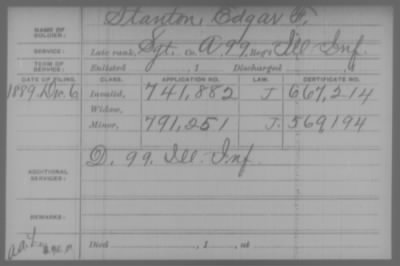 NAME OF SOLDIER: Stanton, Edgar F.
SERVICE: Late rank, Sgt. Co. A 99 Reg't Ill. Inf.
TERM OF SERVICE: Enlisted , 1 Discharged , 1
DATE OF FILING. CLASS. APPLICATION NO. LAW. CERTIFICATE NO.
1889, Dec. 6 Invalid, 741,882 J 667,214
Widow,
Minor, 791,251 J. 569194
ADDITIONAL SERVICES: D. 99. Ill. Inf.
REMARKS:
Died , 1 , at